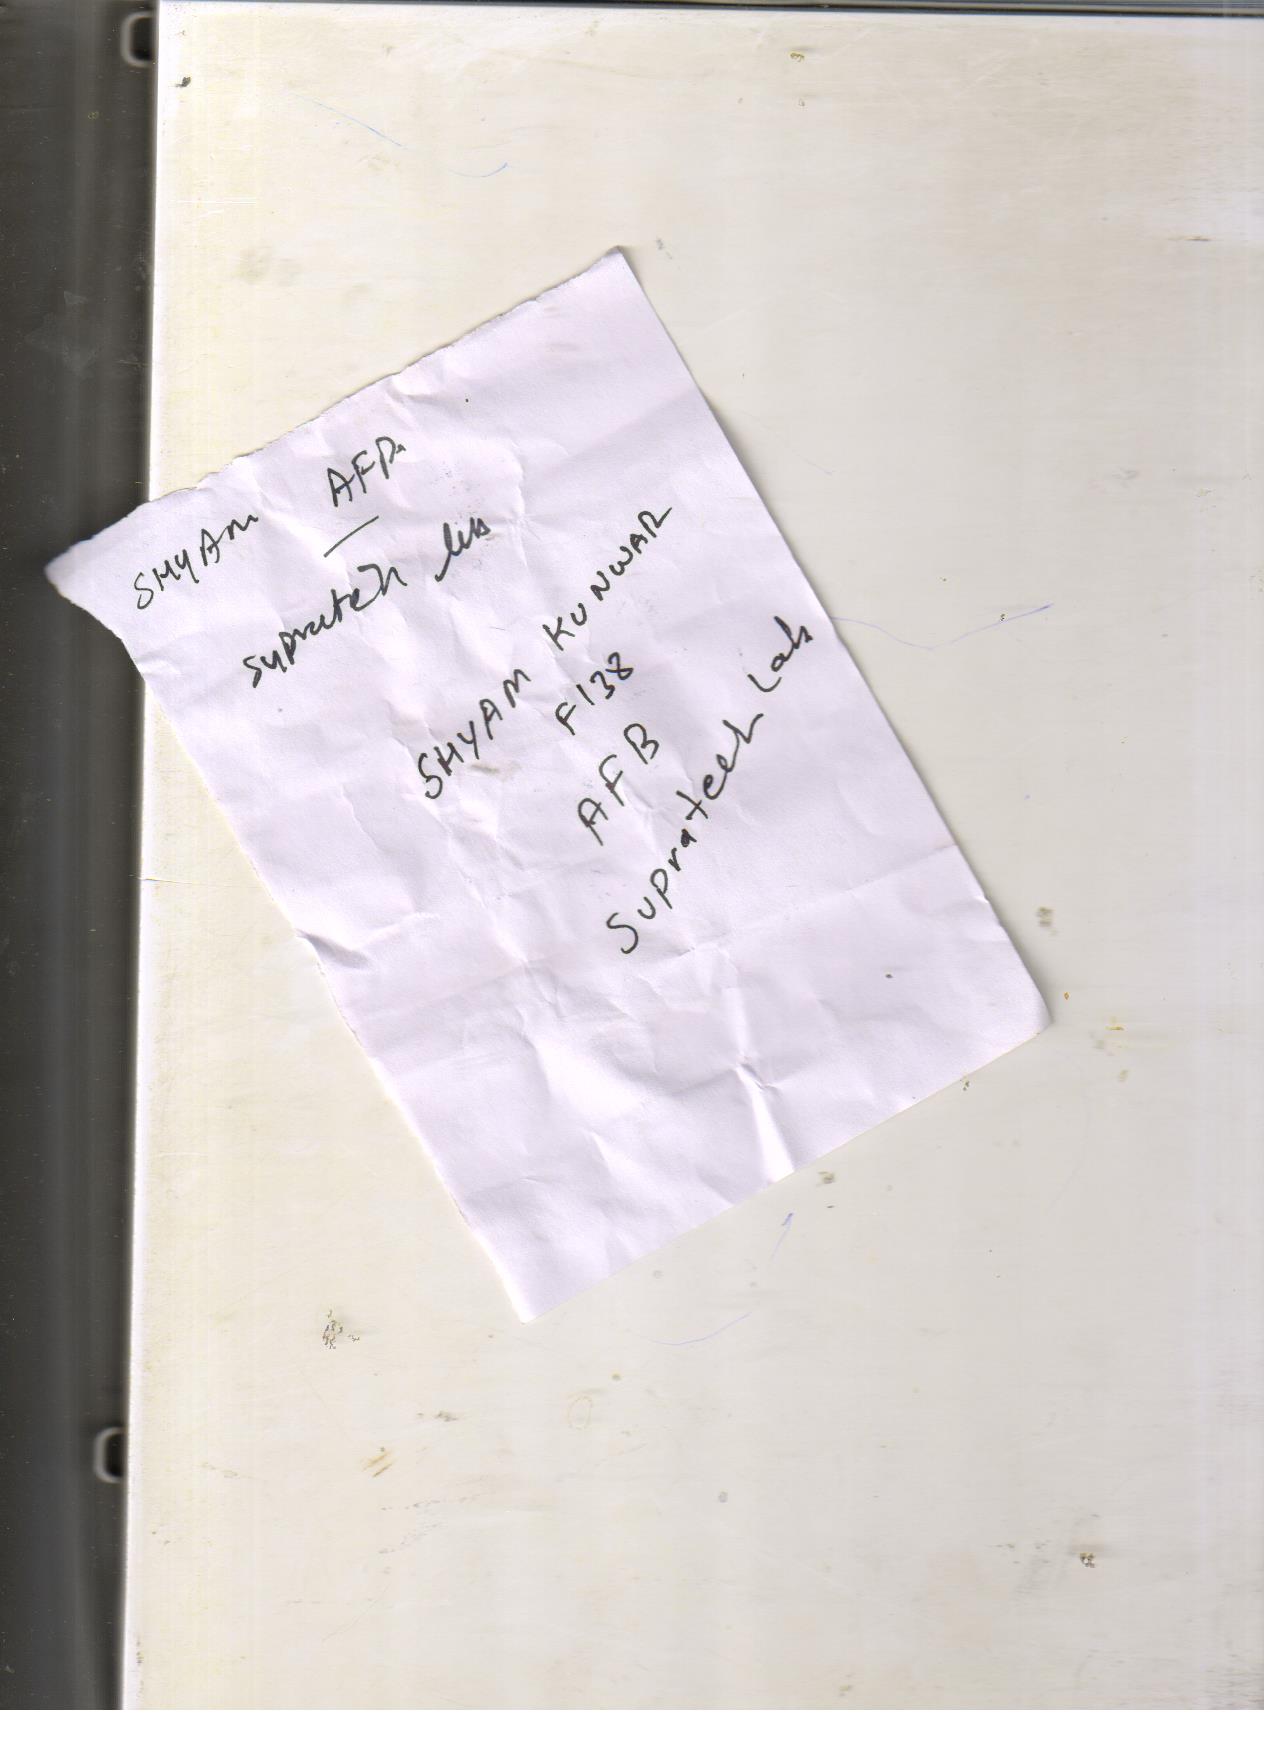 SHYAM AFB
Suprateek Lab
SHYAM KUNWAR
F138
AFB
Suprateek Lab